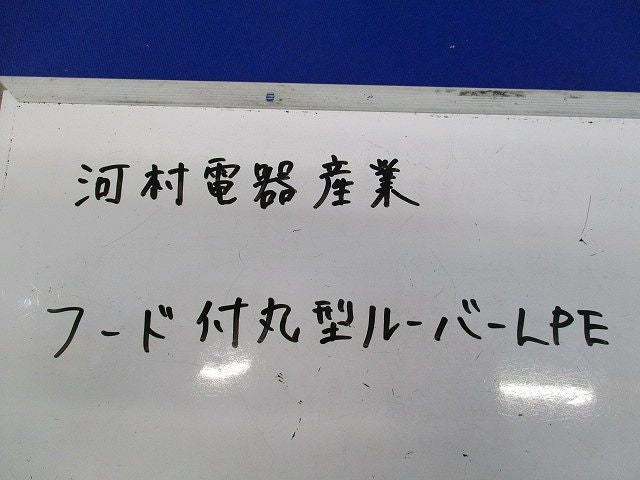 河村電器産業
フード付丸型ルーバーLPE